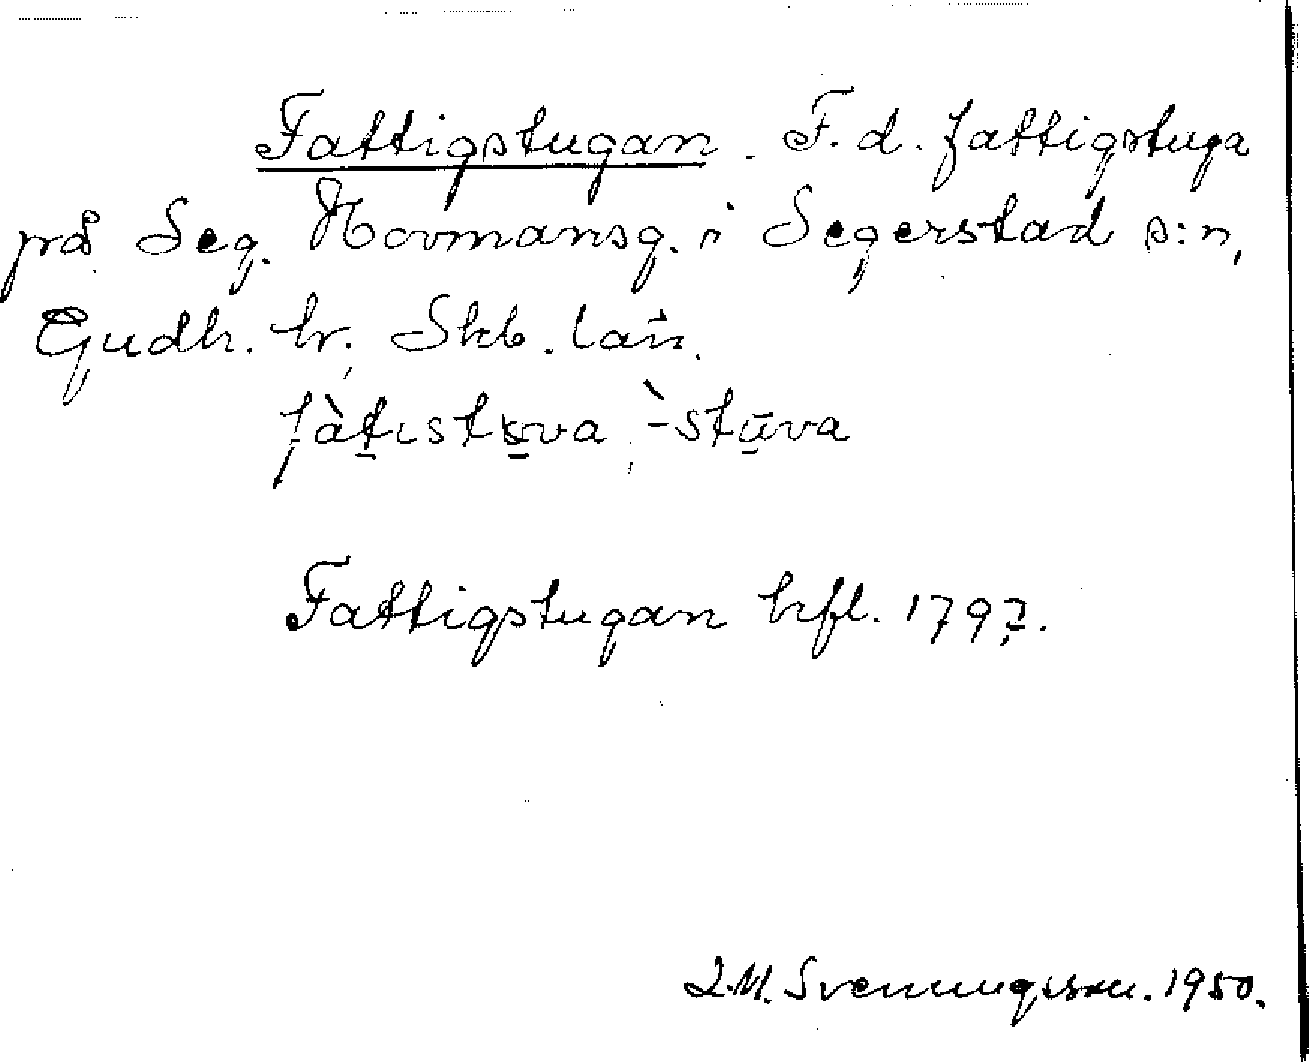 Fattigstugan. F.d. fattigstuga
på Seg. Hovmansg. i Segerstad s:n,
Gudh. hr, Skb. län.
fàtıstʉva, `-stūva
Fattigstugan hfl. 1797.
Svenungsson. 1950.